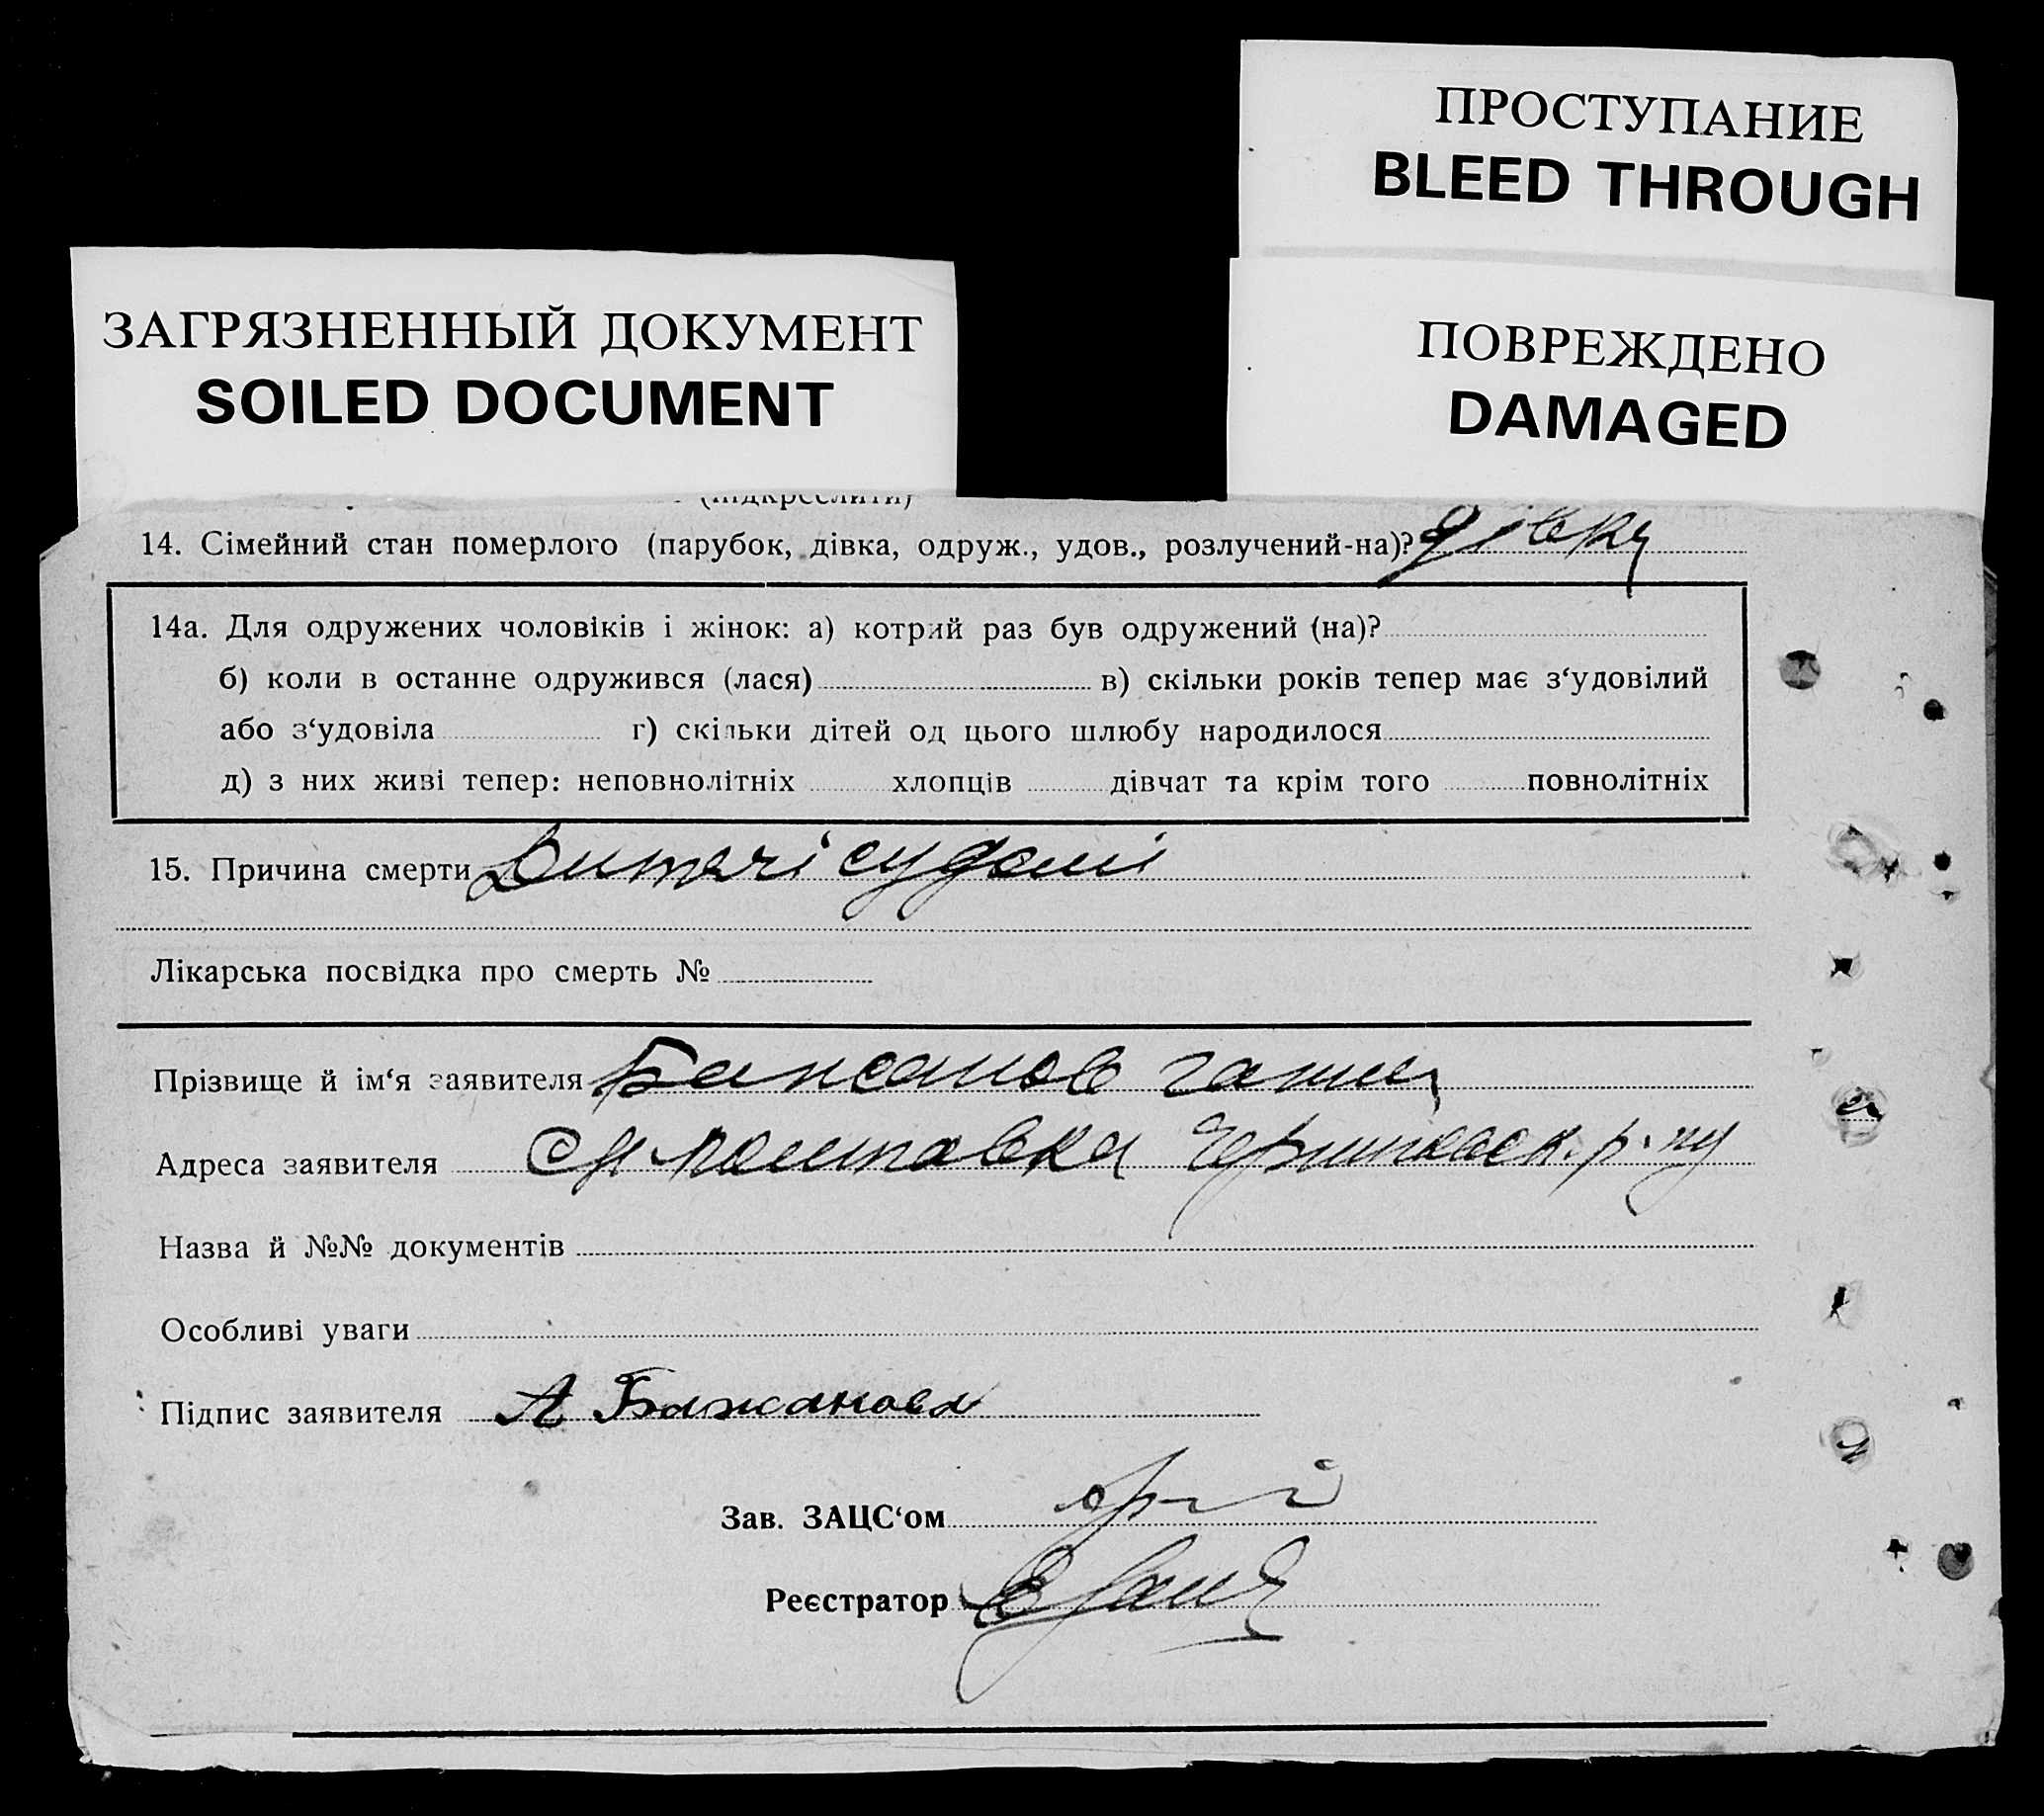 ПРОСТУПАНИЕ
BLEED THROUGH
ЗАГРЯЗНЕННЫЙ ДОКУМЕНТ
SOILED DOCUMENT
ПОВРЕЖДЕНО
DAMAGED
(підкреслити)
14. Сімейний стан померлого (парубок, дівка, одруж., удов., розлучений-на)? дівка
14а. Для одружених чоловіків і жінок: а) котрий раз був одружений (на)?
б) коли в останне одружився (лася) в) скільки років тепер має з‘удовілий
або з‘удовіла г) скільки дітей од цього шлюбу народилося
д) з них живі тепер: неповнолітніх хлопців дівчат та крім того повнолітніх
15. Причина смерти Дитячі судомі
Лікарська посвідка про смерть №
Прізвище й ім‘я заявителя Бажанов
Адреса заявителя р-ну
Назва й №№ документів
Особливі уваги
Підпис заявителя А Бажанова
Зав. ЗАЦС‘ом
Реєстратор